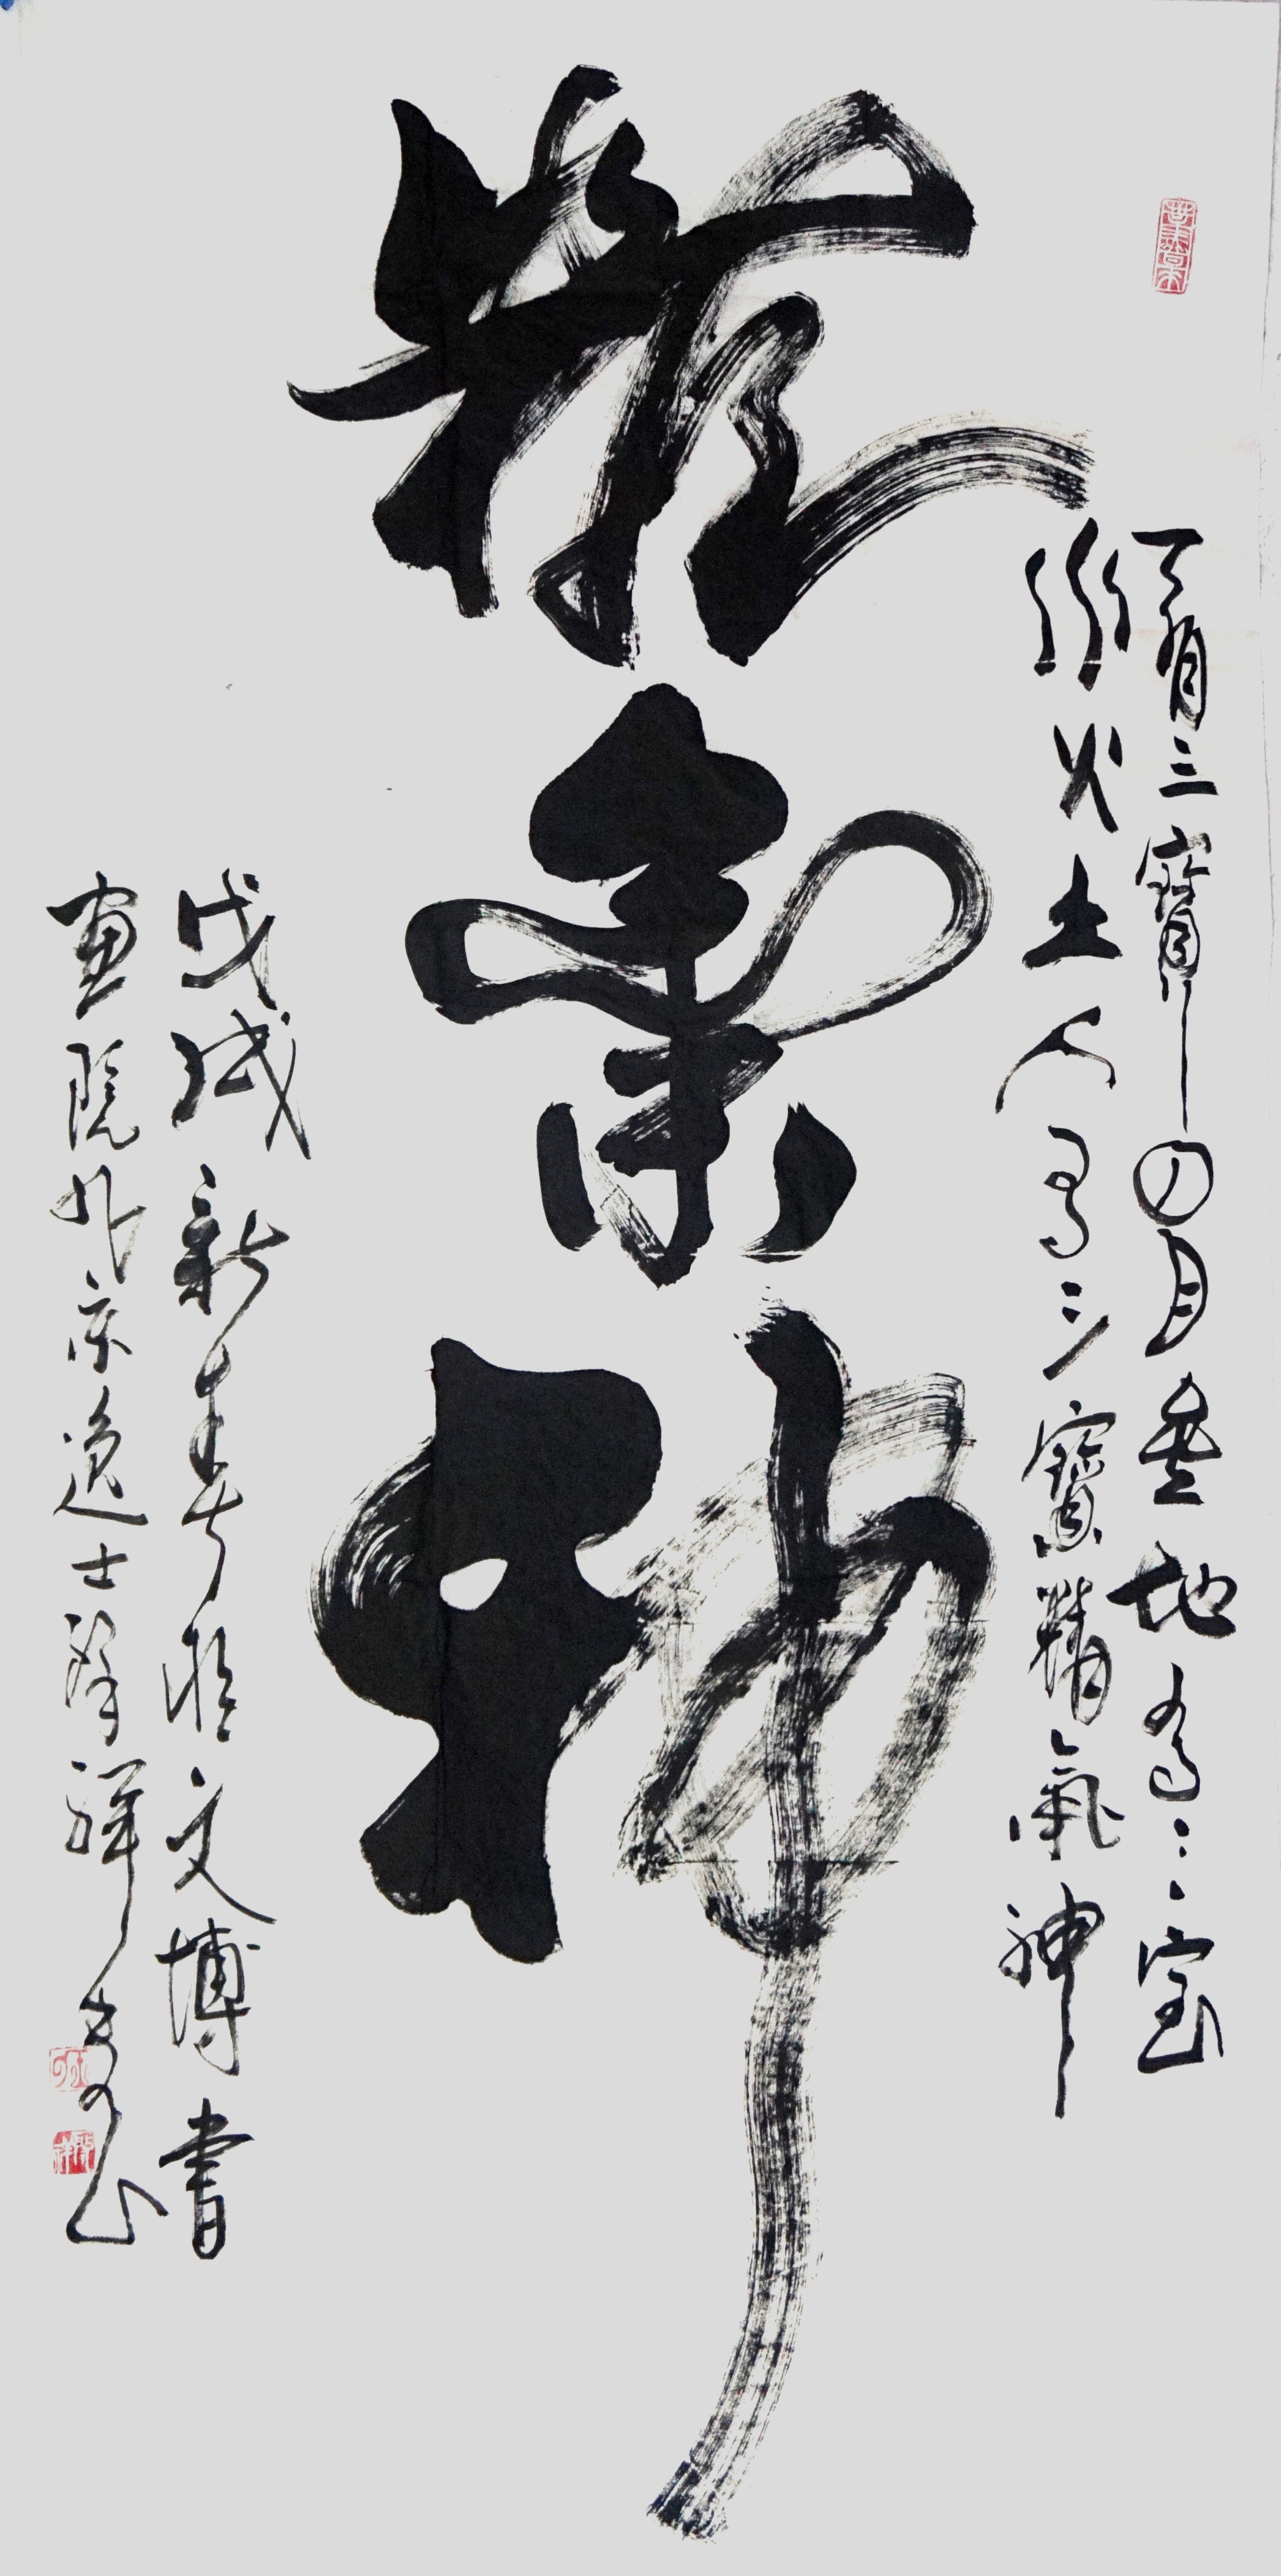 天有三寶日月星地有三宝
水火土人有三寶精氣神
精氣神
戊戌新春於文博書
畫院北京逸士祥